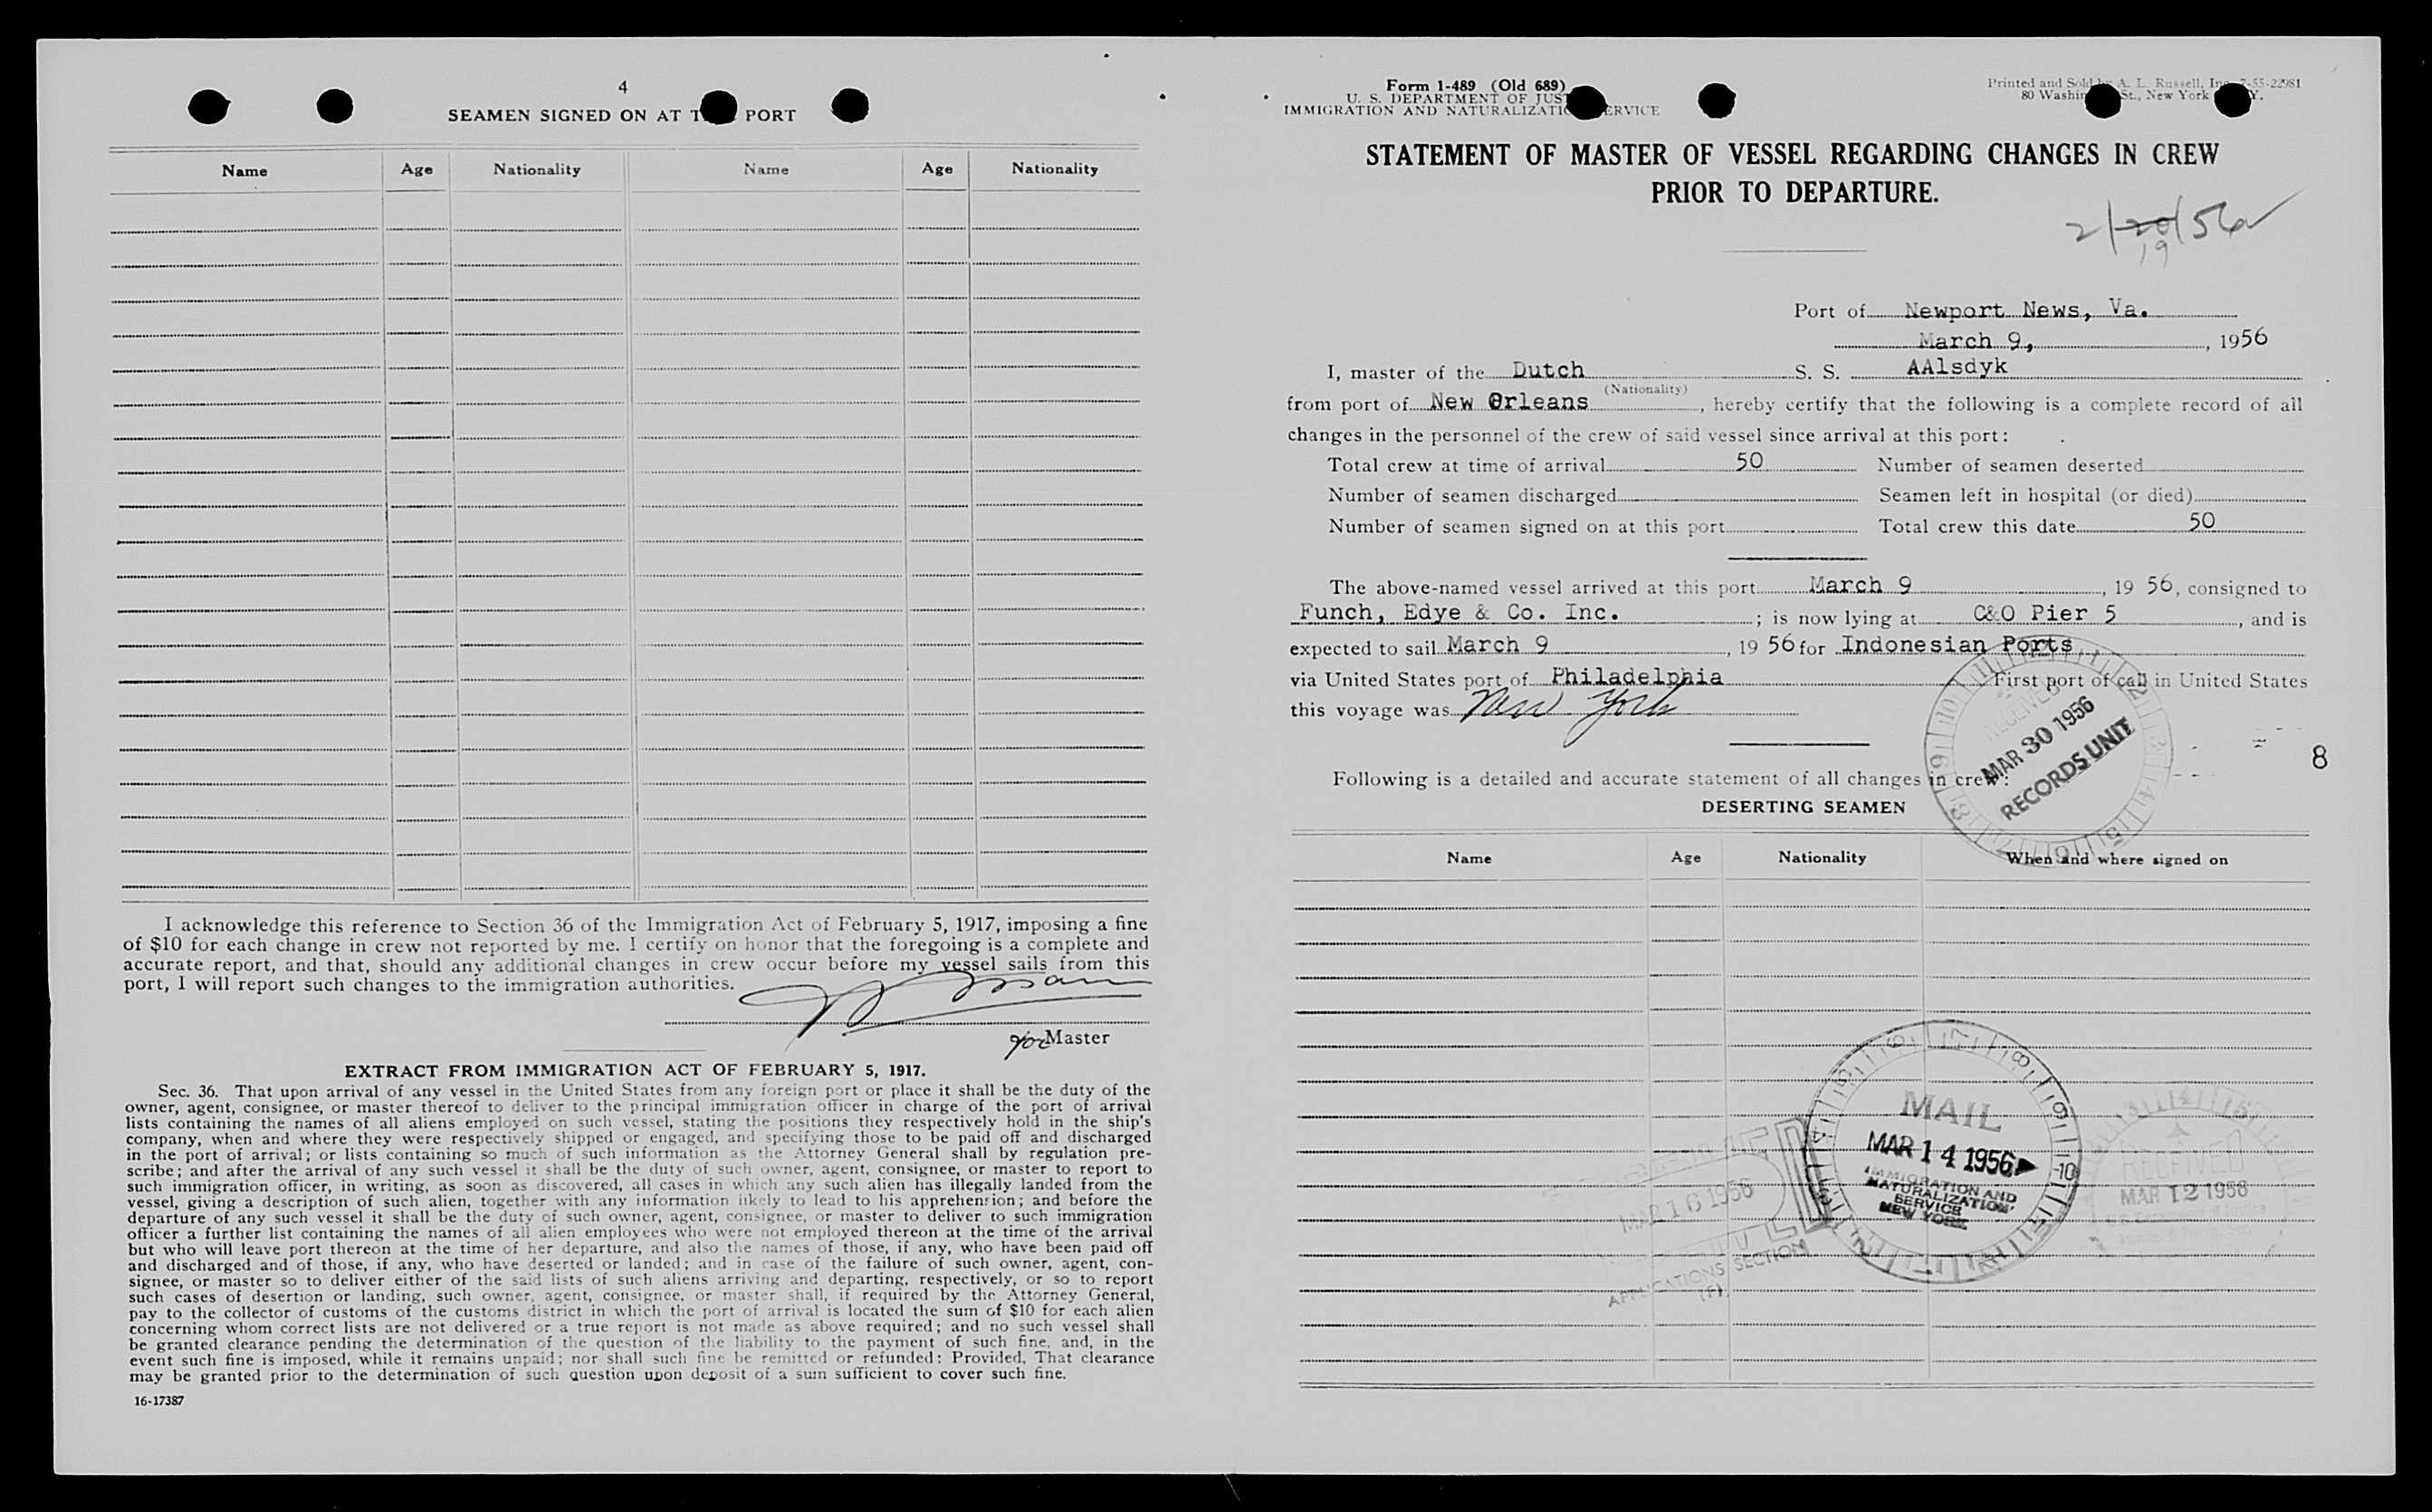 4
SEAMEN SIGNED ON AT PORT
Name Age Nationality Name Age Nationality
I acknowledge this reference to Section 36 of the Immigration Act of February 5, 1917, imposing a fine
of $10 for each change in crew not reported by me. I certify on honor that the foregoing is a complete and
accurate report, and that, should any additional changes in crew occur before my vessel sails from this
port, I will report such changes to the immigration authorities.
for Master
EXTRACT FROM IMMIGRATION ACT OF FEBRUARY 5, 1917.
Sec. 36. That upon arrival of any vessel in the United States from any foreign port or place it shall be the duty of the
owner, agent, consignee, or master thereof to deliver to the principal immigration officer in charge of the port of arrival
lists containing the names of all aliens employed on such vessel, stating the positions they respectively hold in the ship's
company, when and where they were respectively shipped or engaged, and specifying those to be paid off and discharged
in the port of arrival; or lists containing so much of such information as the Attorney General shall by regulation pre-
scribe; and after the arrival of any such vessel it shall be the duty of such owner, agent, consignee, or master to report to
such immigration officer, in writing, as soon as discovered, all cases in which any such alien has illegally landed from the
vessel, giving a description of such alien, together with any information likely to lead to his apprehension; and before the
departure of any such vessel it shall be the duty of such owner, agent, consignee, or master to deliver to such immigration
officer a further list containing the names of all alien employees who were not employed thereon at the time of the arrival
but who will leave port thereon at the time of her departure, and also the names of those, if any, who have been paid off
and discharged and of those, if any, who have deserted or landed; and in case of the failure of such owner, agent, con-
signee, or master so to deliver either of the said lists of such aliens arriving and departing, respectively, or so to report
such cases of desertion or landing, such owner, agent, consignee, or master shall, if required by the Attorney General,
pay to the collector of customs of the customs district in which the port of arrival is located the sum of $10 for each alien
concerning whom correct lists are not delivered or a true report is not made as above required; and no such vessel shall
be granted clearance pending the determination of the question of the liability to the payment of such fine, and, in the
event such fine is imposed, while it remains unpaid; nor shall such fine be remitted or refunded: Provided, That clearance
may be granted prior to the determination of such question upon deposit of a sum sufficient to cover such fine.
16-17387
Form 1-489 (Old 689)
U. S. DEPARTMENT OF JUST
IMMIGRATION AND NATURALIZATIO ERVICE
Printed and Sold by A. L. Russell, Inc. 7-55-22981
80 Washin St., New York Y.
STATEMENT OF MASTER OF VESSEL REGARDING CHANGES IN CREW
PRIOR TO DEPARTURE.
2/20/56
19
Port of Newport News, Va.
March 9, , 1956
I, master of the Dutch S. S. AAlsdyk
(Nationality)
from port of New Orleans , hereby certify that the following is a complete record of all
changes in the personnel of the crew of said vessel since arrival at this port:
Total crew at time of arrival 50 Number of seamen deserted
Number of seamen discharged Seamen left in hospital (or died)
Number of seamen signed on at this port Total crew this date 50
The above-named vessel arrived at this port March 9 , 19 56, consigned to
Funch, Edye & Co. Inc. ; is now lying at C&O Pier 5 , and is
expected to sail March 9 , 19 56 for Indonesian Ports
via United States port of Philadelphia First port of call in United States
this voyage was New York
RECEIVED
MAR 30 1956
RECORDS UNIT
8
Following is a detailed and accurate statement of all changes in crew:
DESERTING SEAMEN
Name Age Nationality When and where signed on
MAIL
MAR 14 1956
IMMIGRATION AND
NATURALIZATION
SERVICE
NEW YORK
RECEIVED
MAR 12 1956
MAR 16 1956
APPLICATIONS SECTION
(F)